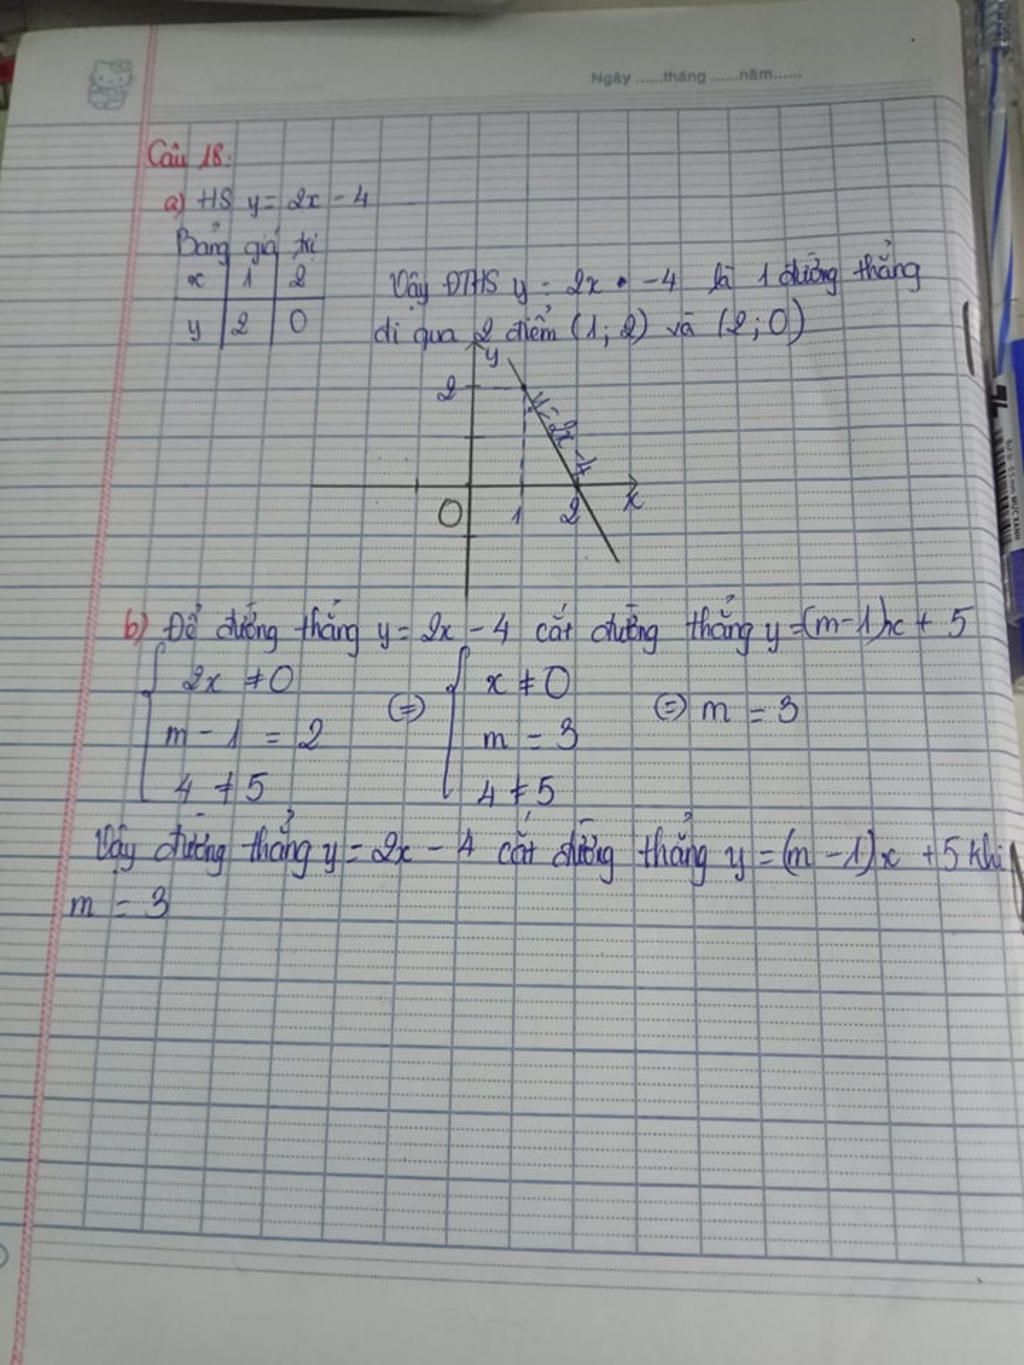 Ngày ......tháng ......năm......
Câu 18.
a) HS y = 2x - 4
Bảng giá trị
x 1 2
y 2 0
Vậy ĐTHS y = 2x • -4 là 1 đường thẳng
đi qua 2 điểm (1; 2) và (2; 0)
y
2
y = 2x - 4
O 1 2 x
b) Để đường thẳng y = 2x - 4 cắt đường thẳng y = (m-1)x + 5
{ 2x ≠ 0 (=) { x ≠ 0 (=) m = 3
m - 1 = 2 m = 3
4 ≠ 5 4 ≠ 5
Vậy đường thẳng y = 2x - 4 cắt đường thẳng y = (m - 1)x + 5 khi
m = 3